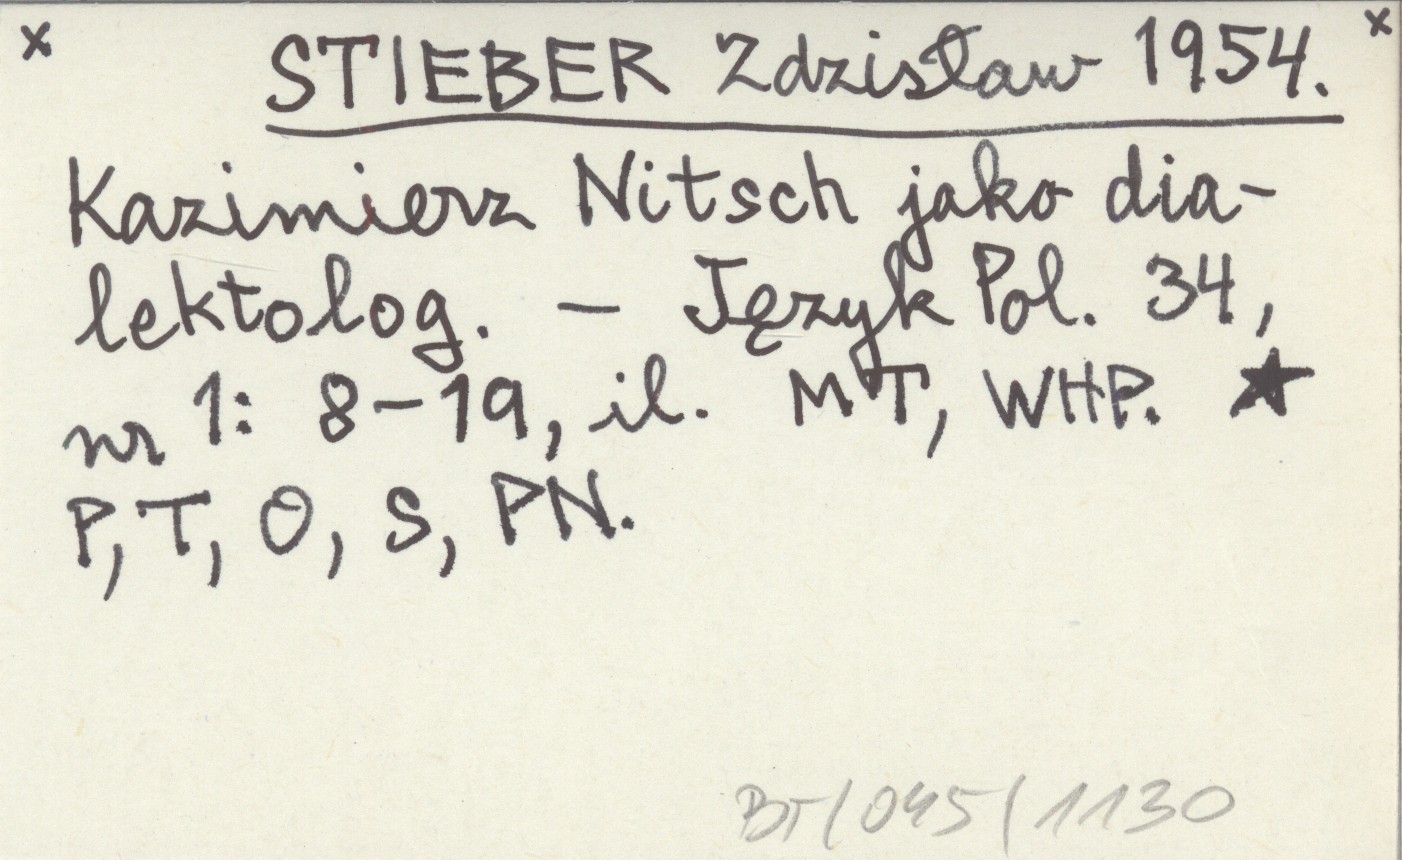 x STIEBER Zdzisław 1954. x
Kazimierz Nitsch jako dia-
lektolog. – Język Pol. 34,
nr 1: 8–19, il. MT, WHP. ★
P, T, O, S, PN.
BT/045/1130